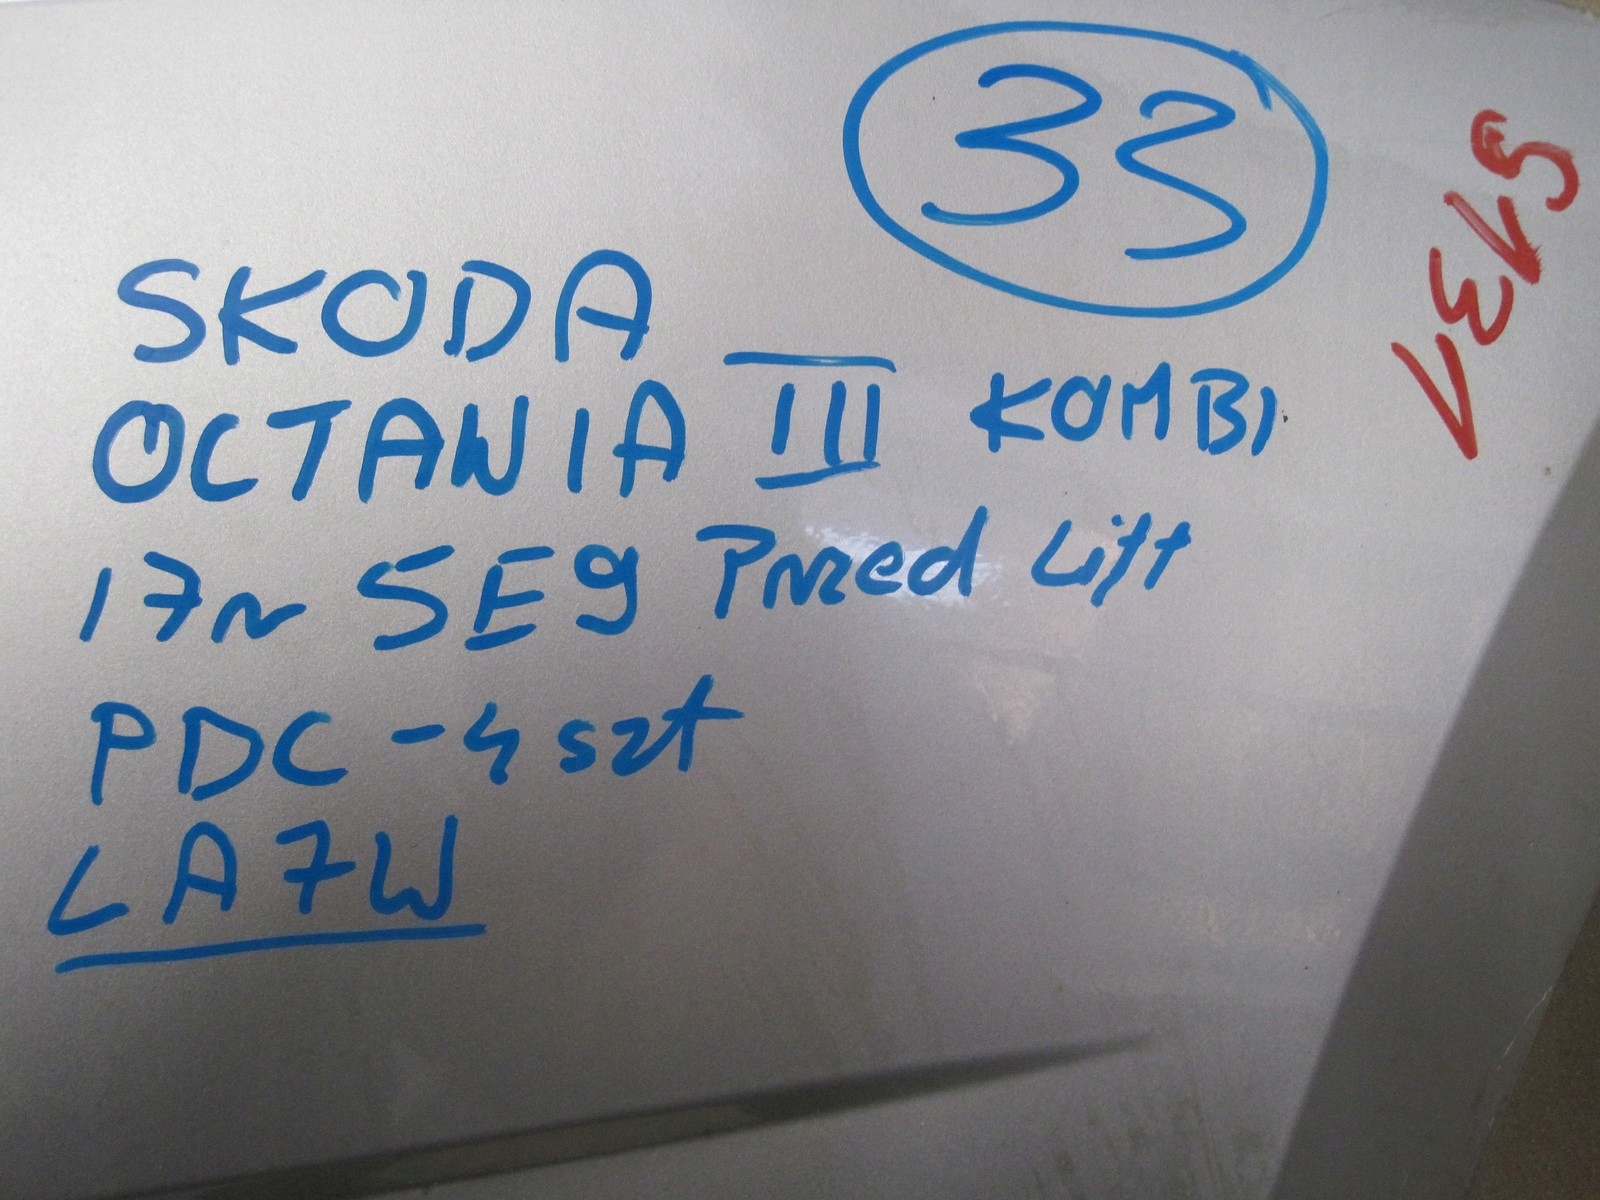 33
SKODA
OCTAWIA III KOMBI
17r 5E9 Przed Lift
PDC - 4 szt
LA7W